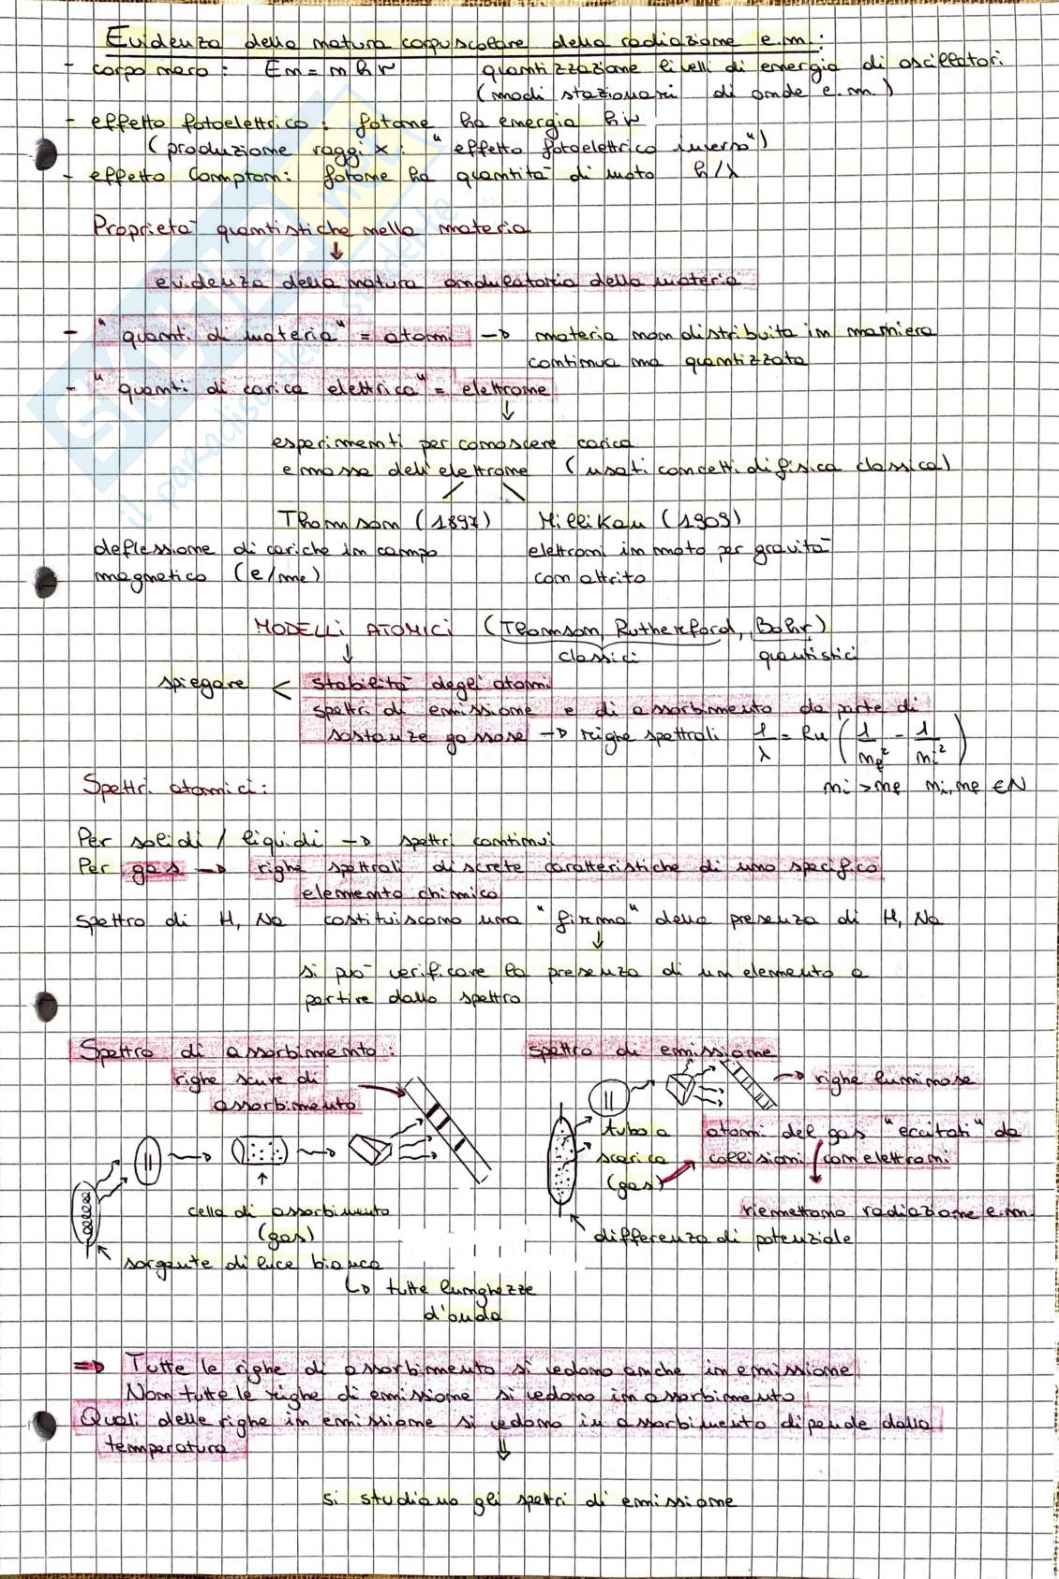 Evidenza della natura corpuscolare della radiazione e.m.:
- corpo nero: En = n h ν quantizzazione livelli di energia di oscillatori
(modi stazionari di onde e.m.)
- effetto fotoelettrico: fotone ha energia hν
(produzione raggi x: "effetto fotoelettrico inverso")
- effetto Compton: fotone ha quantità di moto h/λ
Proprietà quantistiche nella materia
↓
evidenza della natura ondulatoria della materia
- "quanti di materia" = atomi → materia non distribuita in maniera
continua ma quantizzata
- "quanti di carica elettrica" = elettrone
↓
esperimenti per conoscere carica
e massa dell'elettrone (usati concetti di fisica classica)
Thomson (1897) Millikan (1909)
deflessione di cariche in campo elettroni in moto per gravità
magnetico (e/me) con attrito
MODELLI ATOMICI (Thomson, Rutherford, Bohr)
↓ classici quantistici
spiegare < stabilità degli atomi
spettri di emissione e di assorbimento da parte di
sostanze gassose → righe spettrali 1/λ = RH (1/nf² - 1/ni²)
Spettri atomici: ni > nf ni, nf ∈ N
Per solidi / liquidi → spettri continui
Per gas → righe spettrali discrete caratteristiche di uno specifico
elemento chimico
Spettro di H, Na costituiscono una "firma" della presenza di H, Na
↓
si può verificare la presenza di un elemento a
partire dallo spettro
Spettro di assorbimento: spettro di emissione
righe scure di → righe luminose
assorbimento
tubo a atomi del gas "eccitati" da
scarica collisioni con elettroni
(gas)
cella di assorbimento riemettono radiazione e.m.
(gas) differenza di potenziale
sorgente di luce bianca
↳ tutte lunghezze
d'onda
⇒ Tutte le righe di assorbimento si vedono anche in emissione
Non tutte le righe di emissione si vedono in assorbimento
Quali delle righe in emissione si vedono in assorbimento dipende dalla
temperatura
⇓
si studiano gli spettri di emissione